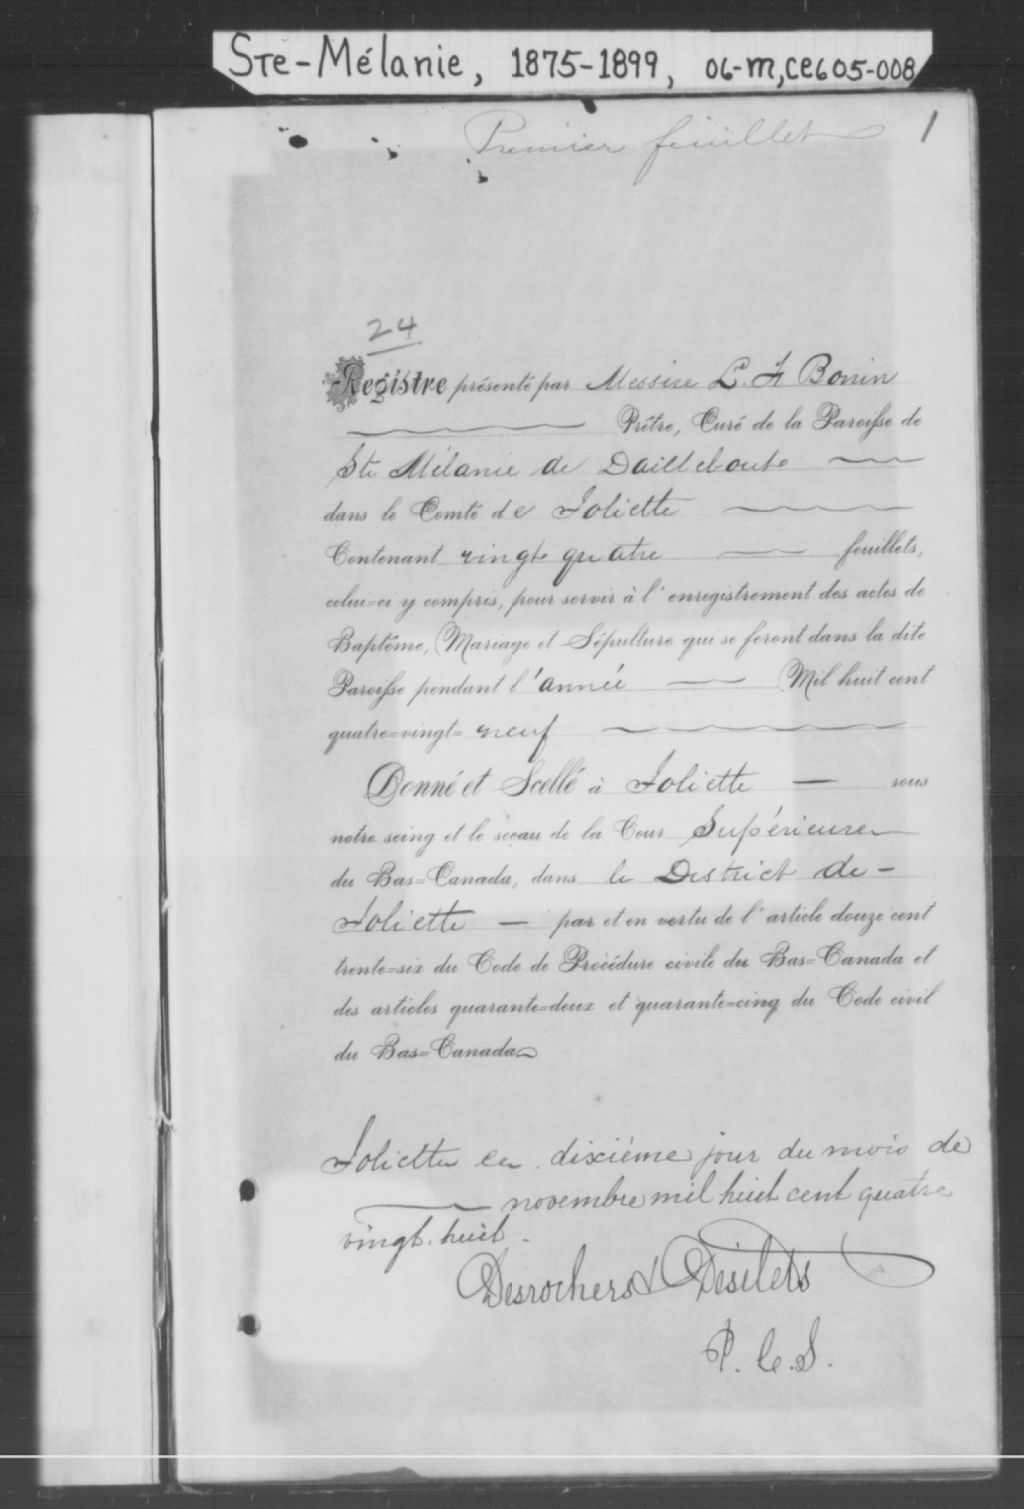 Ste-Mélanie, 1875-1899, 06-M, CE605-008
1
Premier feuillet
24
Registre présenté par Messire L. F. Bonin
Prêtre, Curé de la Paroisse de
Ste Mélanie de Daillebout
dans le Comté de Joliette
Contenant vingt quatre feuillets,
celui-ci y compris, pour servir à l'enregistrement des actes de
Baptême, Mariage et Sépulture qui se feront dans la dite
Paroisse pendant l'année Mil huit cent
quatre-vingt-neuf
Donné et Scellé à Joliette — sous
notre seing et le sceau de la Cour Supérieure
du Bas-Canada, dans le District de -
Joliette — par et en vertu de l'article douze cent
trente-six du Code de Procédure civile du Bas-Canada et
des articles quarante-deux et quarante-cinq du Code civil
du Bas-Canada
Joliette ce dixième jour du mois de
novembre mil huit cent quatre
vingt-huit.
Desrochers & Desilets
P. C. S.